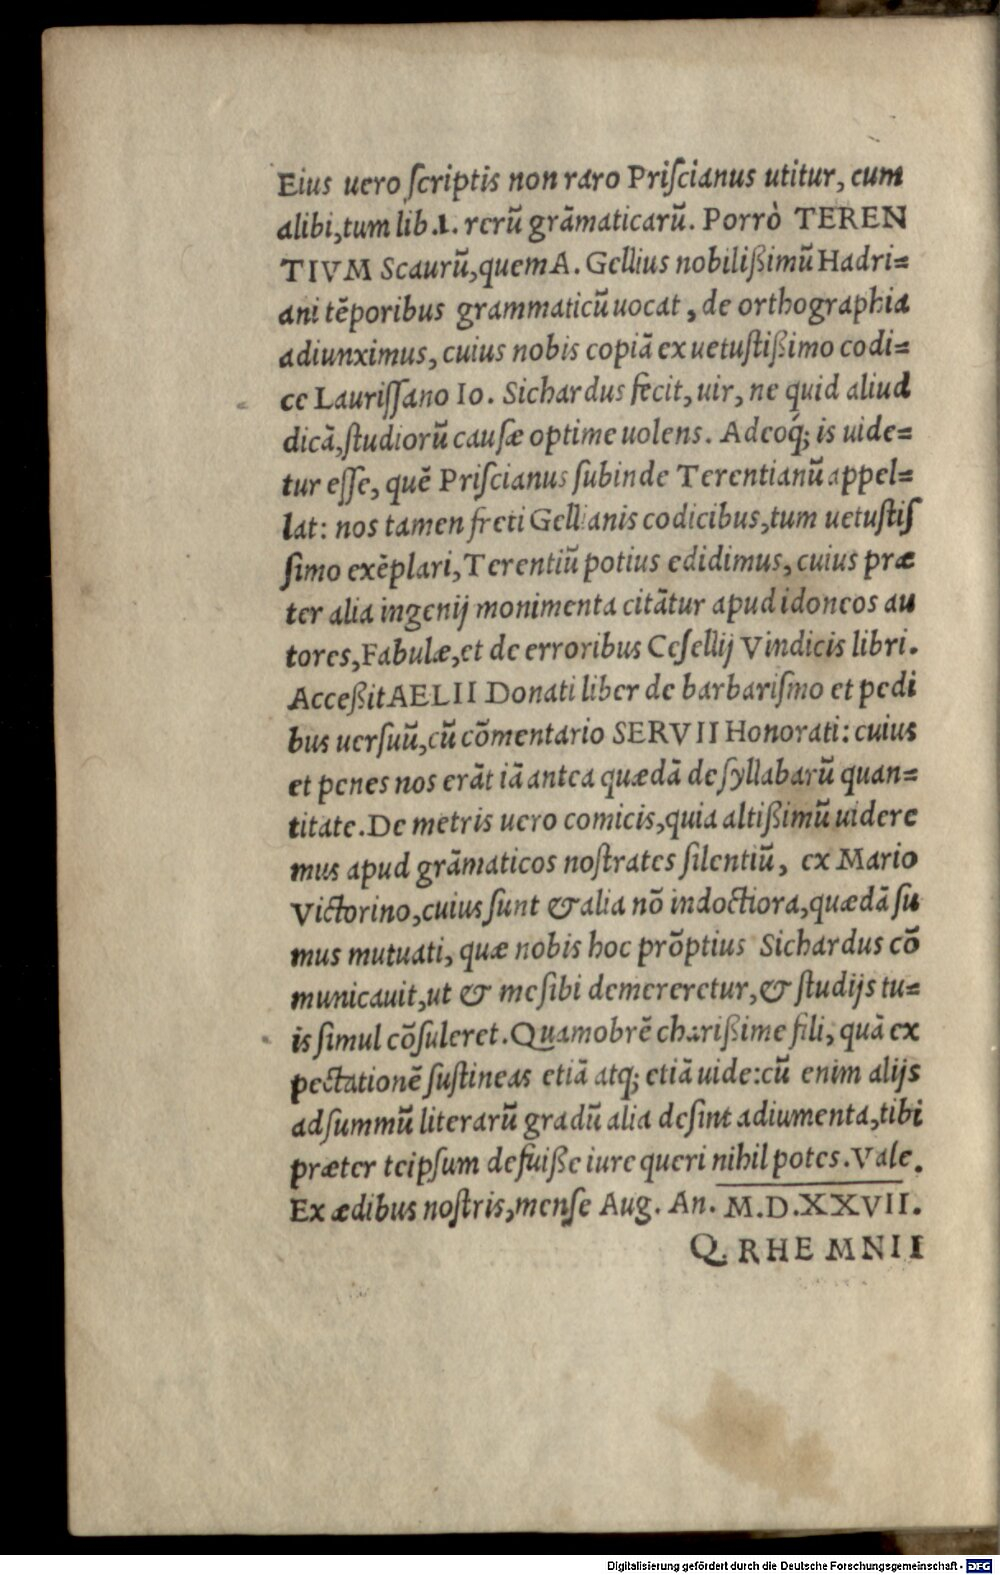 Eius uero ſcriptis non raro Priſcianus utitur, cum
alibi,tum lib.1. rerũ grãmaticarũ. Porrò TEREN
TIVM Scaurũ,quem A. Gellius nobilißimũ Hadri=
ani tẽporibus grammaticũ uocat, de orthographia
adiunximus, cuius nobis copiã ex uetuſtißimo codi=
ce Lauriſſano Io. Sichardus fecit, uir, ne quid aliud
dicã,ſtudiorũ cauſæ optime uolens. Adeoq́; is uide=
tur eſſe, quẽ Priſcianus ſubinde Terentianũ appel=
lat: nos tamen freti Gellianis codicibus,tum uetuſtiſ
ſimo exẽplari,Terentiũ potius edidimus, cuius præ
ter alia ingenij monimenta citãtur apud idoneos au
tores,Fabulæ,et de erroribus Ceſellij Vindicis libri.
Acceßit AELII Donati liber de barbariſmo et pedi
bus uerſuũ,cũ cõmentario SERVII Honorati: cuius
et penes nos erãt iã antea quædã de ſyllabarũ quan=
titate.De metris uero comicis,quia altißimũ uidere
mus apud grãmaticos noſtrates ſilentiũ, ex Mario
Victorino,cuius ſunt & alia nõ indoctiora,quædã ſu
mus mutuati, quæ nobis hoc prõptius Sichardus cõ
municauit,ut & me ſibi demereretur,& ſtudijs tu=
is ſimul cõſuleret.Quamobrẽ charißime fili, quã ex
pectationẽ ſuſtineas etiã atq; etiã uide:cũ enim alijs
ad ſummũ literarũ gradũ alia deſint adiumenta,tibi
præter teipſum defuiße iure queri nihil potes.Vale.
Ex ædibus noſtris,menſe Aug. An. M.D.XXVII.
Q. RHEMNII
Digitalisierung gefördert durch die Deutsche Forschungsgemeinschaft - DFG